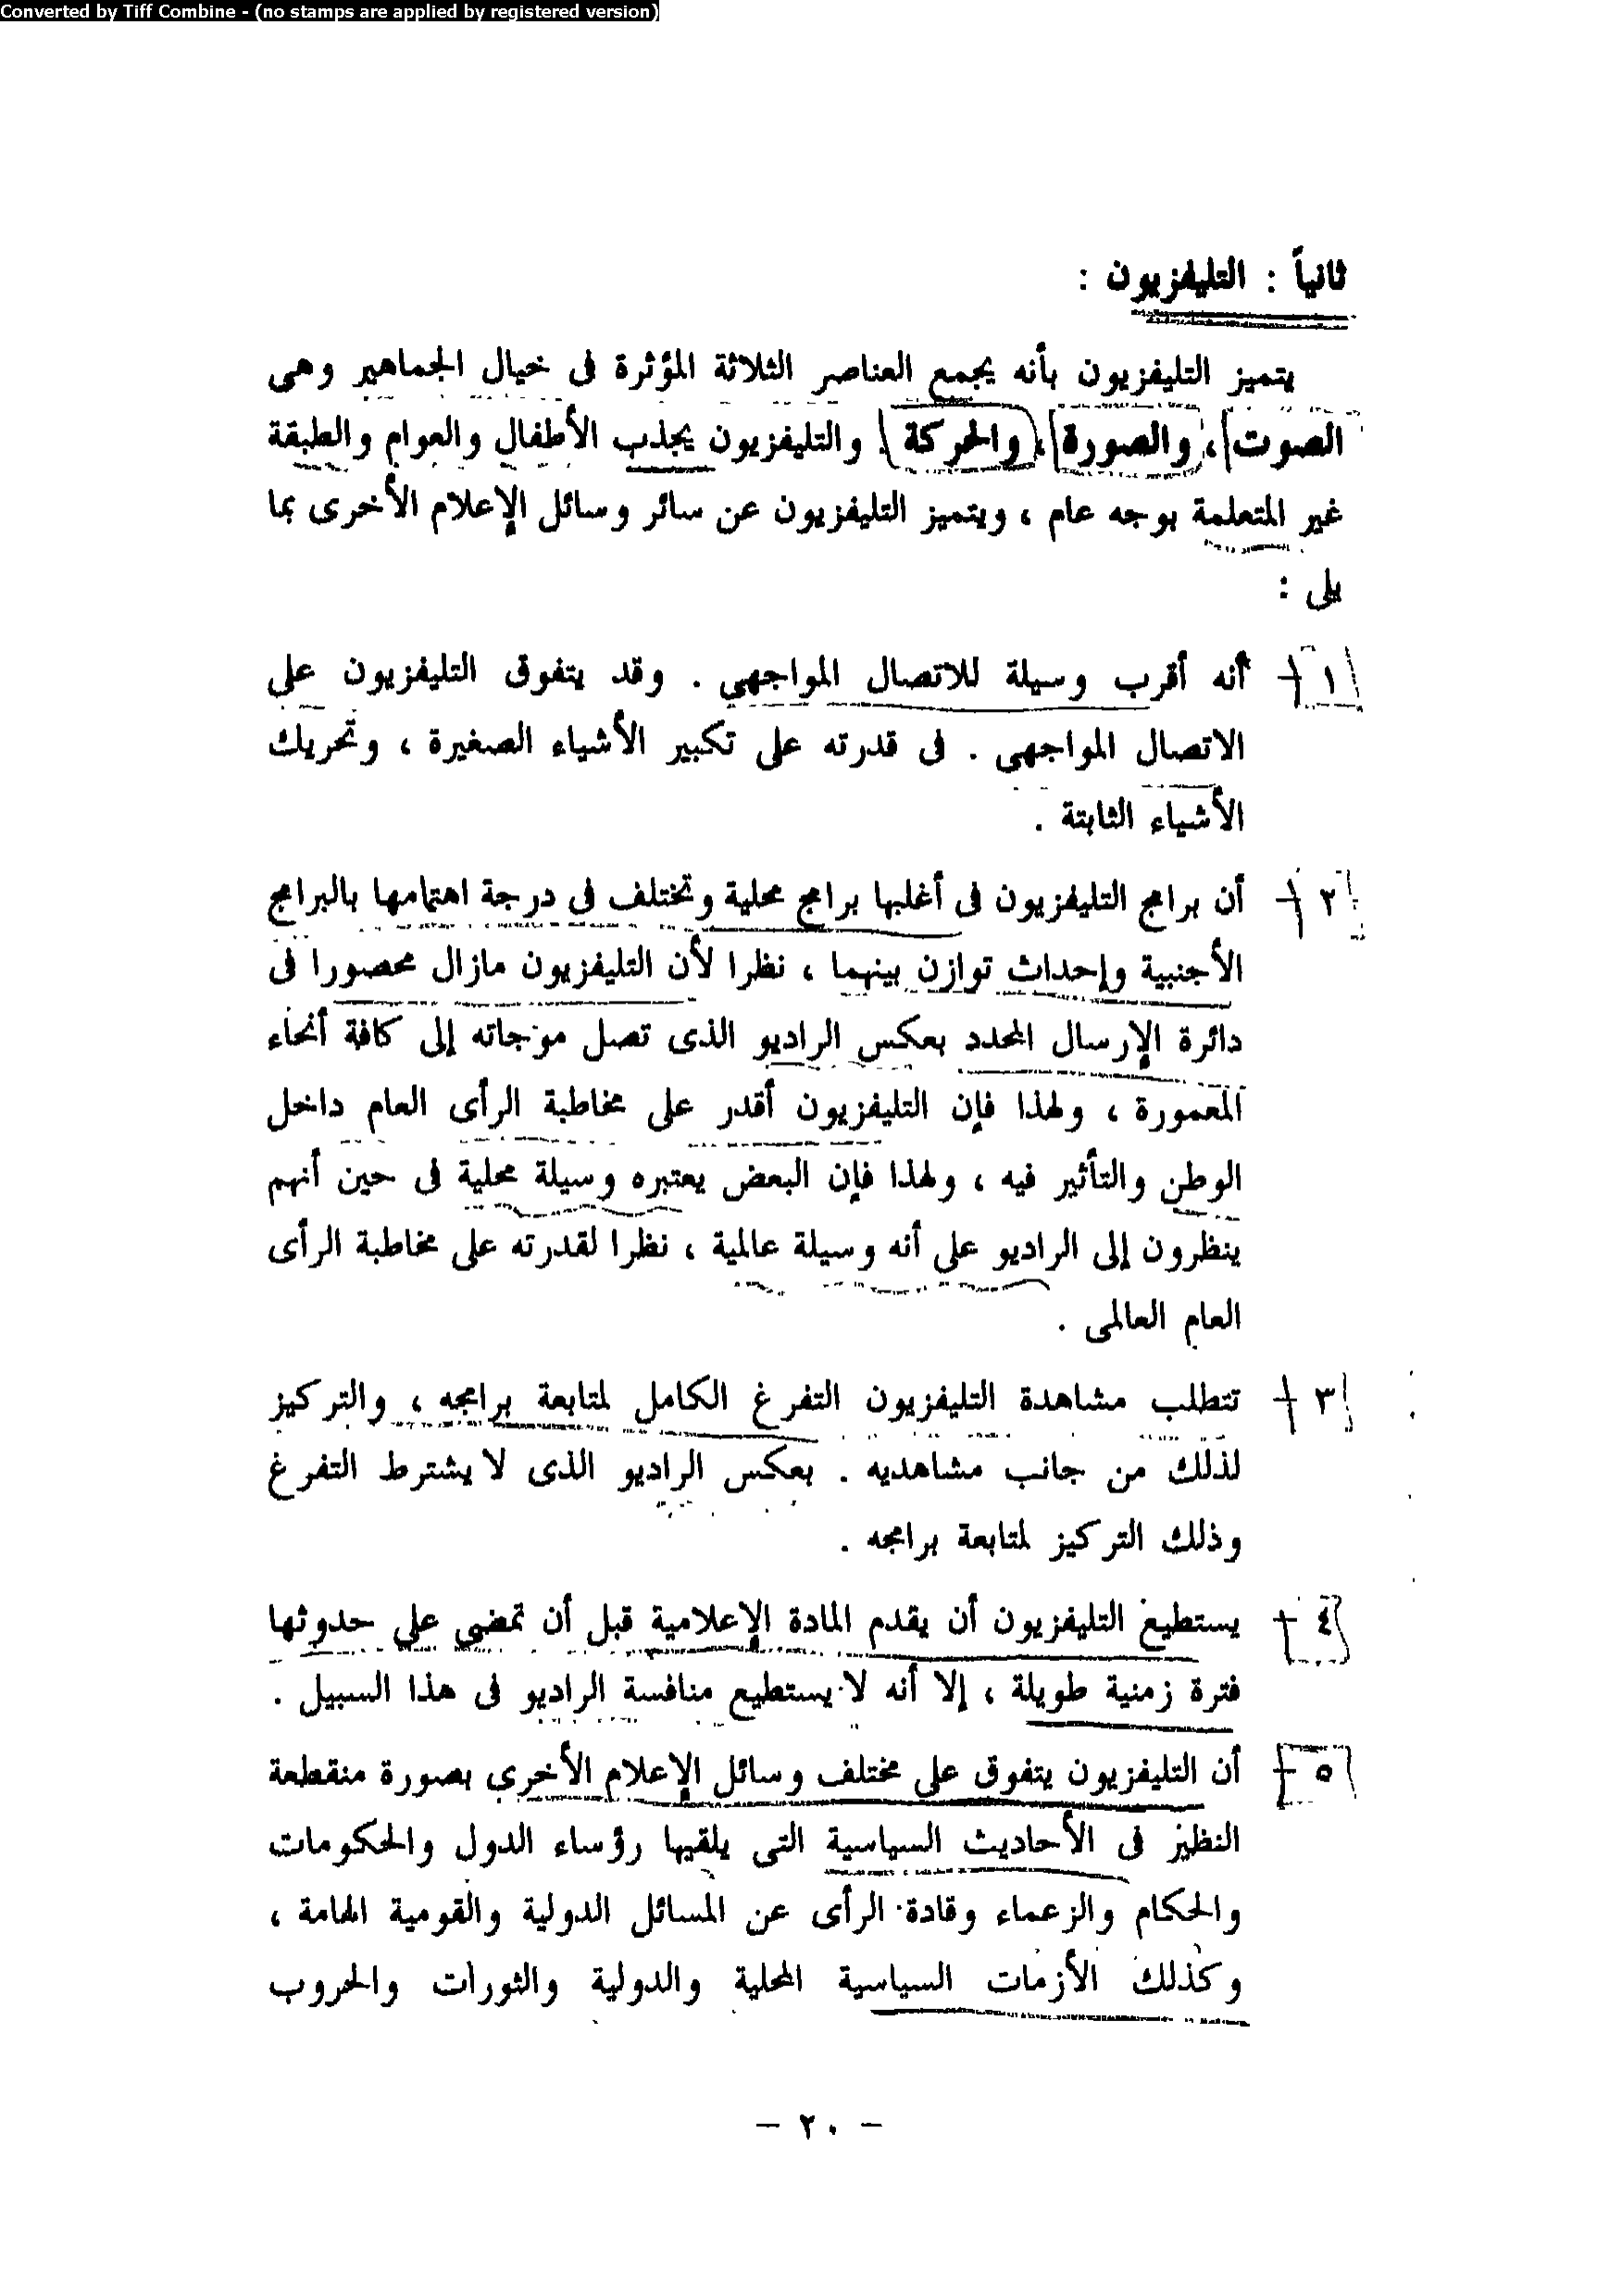 Converted by Tiff Combine - (no stamps are applied by registered version)
ثانياً : التليفزيون :
يتميز التليفزيون بأنه يجمع العناصر الثلاثة المؤثرة فى خيال الجماهير وهى
الصوت ، والصورة ، والحركة . والتليفزيون يجذب الأطفال والعوام والطبقة
غير المتعلمة بوجه عام ، ويتميز التليفزيون عن سائر وسائل الإعلام الأخرى بما
يلى :
١ - أنه أقرب وسيلة للاتصال المواجهى . وقد يتفوق التليفزيون على
الاتصال المواجهى . فى قدرته على تكبير الأشياء الصغيرة ، وتحريك
الأشياء الثابتة .
٢ - أن برامج التليفزيون فى أغلبها برامج محلية وتختلف فى درجة اهتمامها بالبرامج
الأجنبية وإحداث توازن بينهما ، نظرا لأن التليفزيون مازال محصورا فى
دائرة الإرسال المحدد بعكس الراديو الذى تصل موجاته إلى كافة أنحاء
المعمورة ، ولهذا فإن التليفزيون أقدر على مخاطبة الرأى العام داخل
الوطن والتأثير فيه ، ولهذا فإن البعض يعتبره وسيلة محلية فى حين أنهم
ينظرون إلى الراديو على أنه وسيلة عالمية ، نظرا لقدرته على مخاطبة الرأى
العام العالمى .
٣ - تتطلب مشاهدة التليفزيون التفرغ الكامل لمتابعة برامجه ، والتركيز
لذلك من جانب مشاهديه . بعكس الراديو الذى لا يشترط التفرغ
وذلك التركيز لمتابعة برامجه .
٤ - يستطيع التليفزيون أن يقدم المادة الإعلامية قبل أن تمضى على حدوثها
فترة زمنية طويلة ، إلا أنه لا يستطيع منافسة الراديو فى هذا السبيل .
٥ - أن التليفزيون يتفوق على مختلف وسائل الإعلام الأخرى بصورة منقطعة
النظير فى الأحاديث السياسية التى يلقيها رؤساء الدول والحكومات
والحكام والزعماء وقادة الرأى عن المسائل الدولية والقومية الهامة ،
وكذلك الأزمات السياسية المحلية والدولية والثورات والحروب
- ٢٠ -